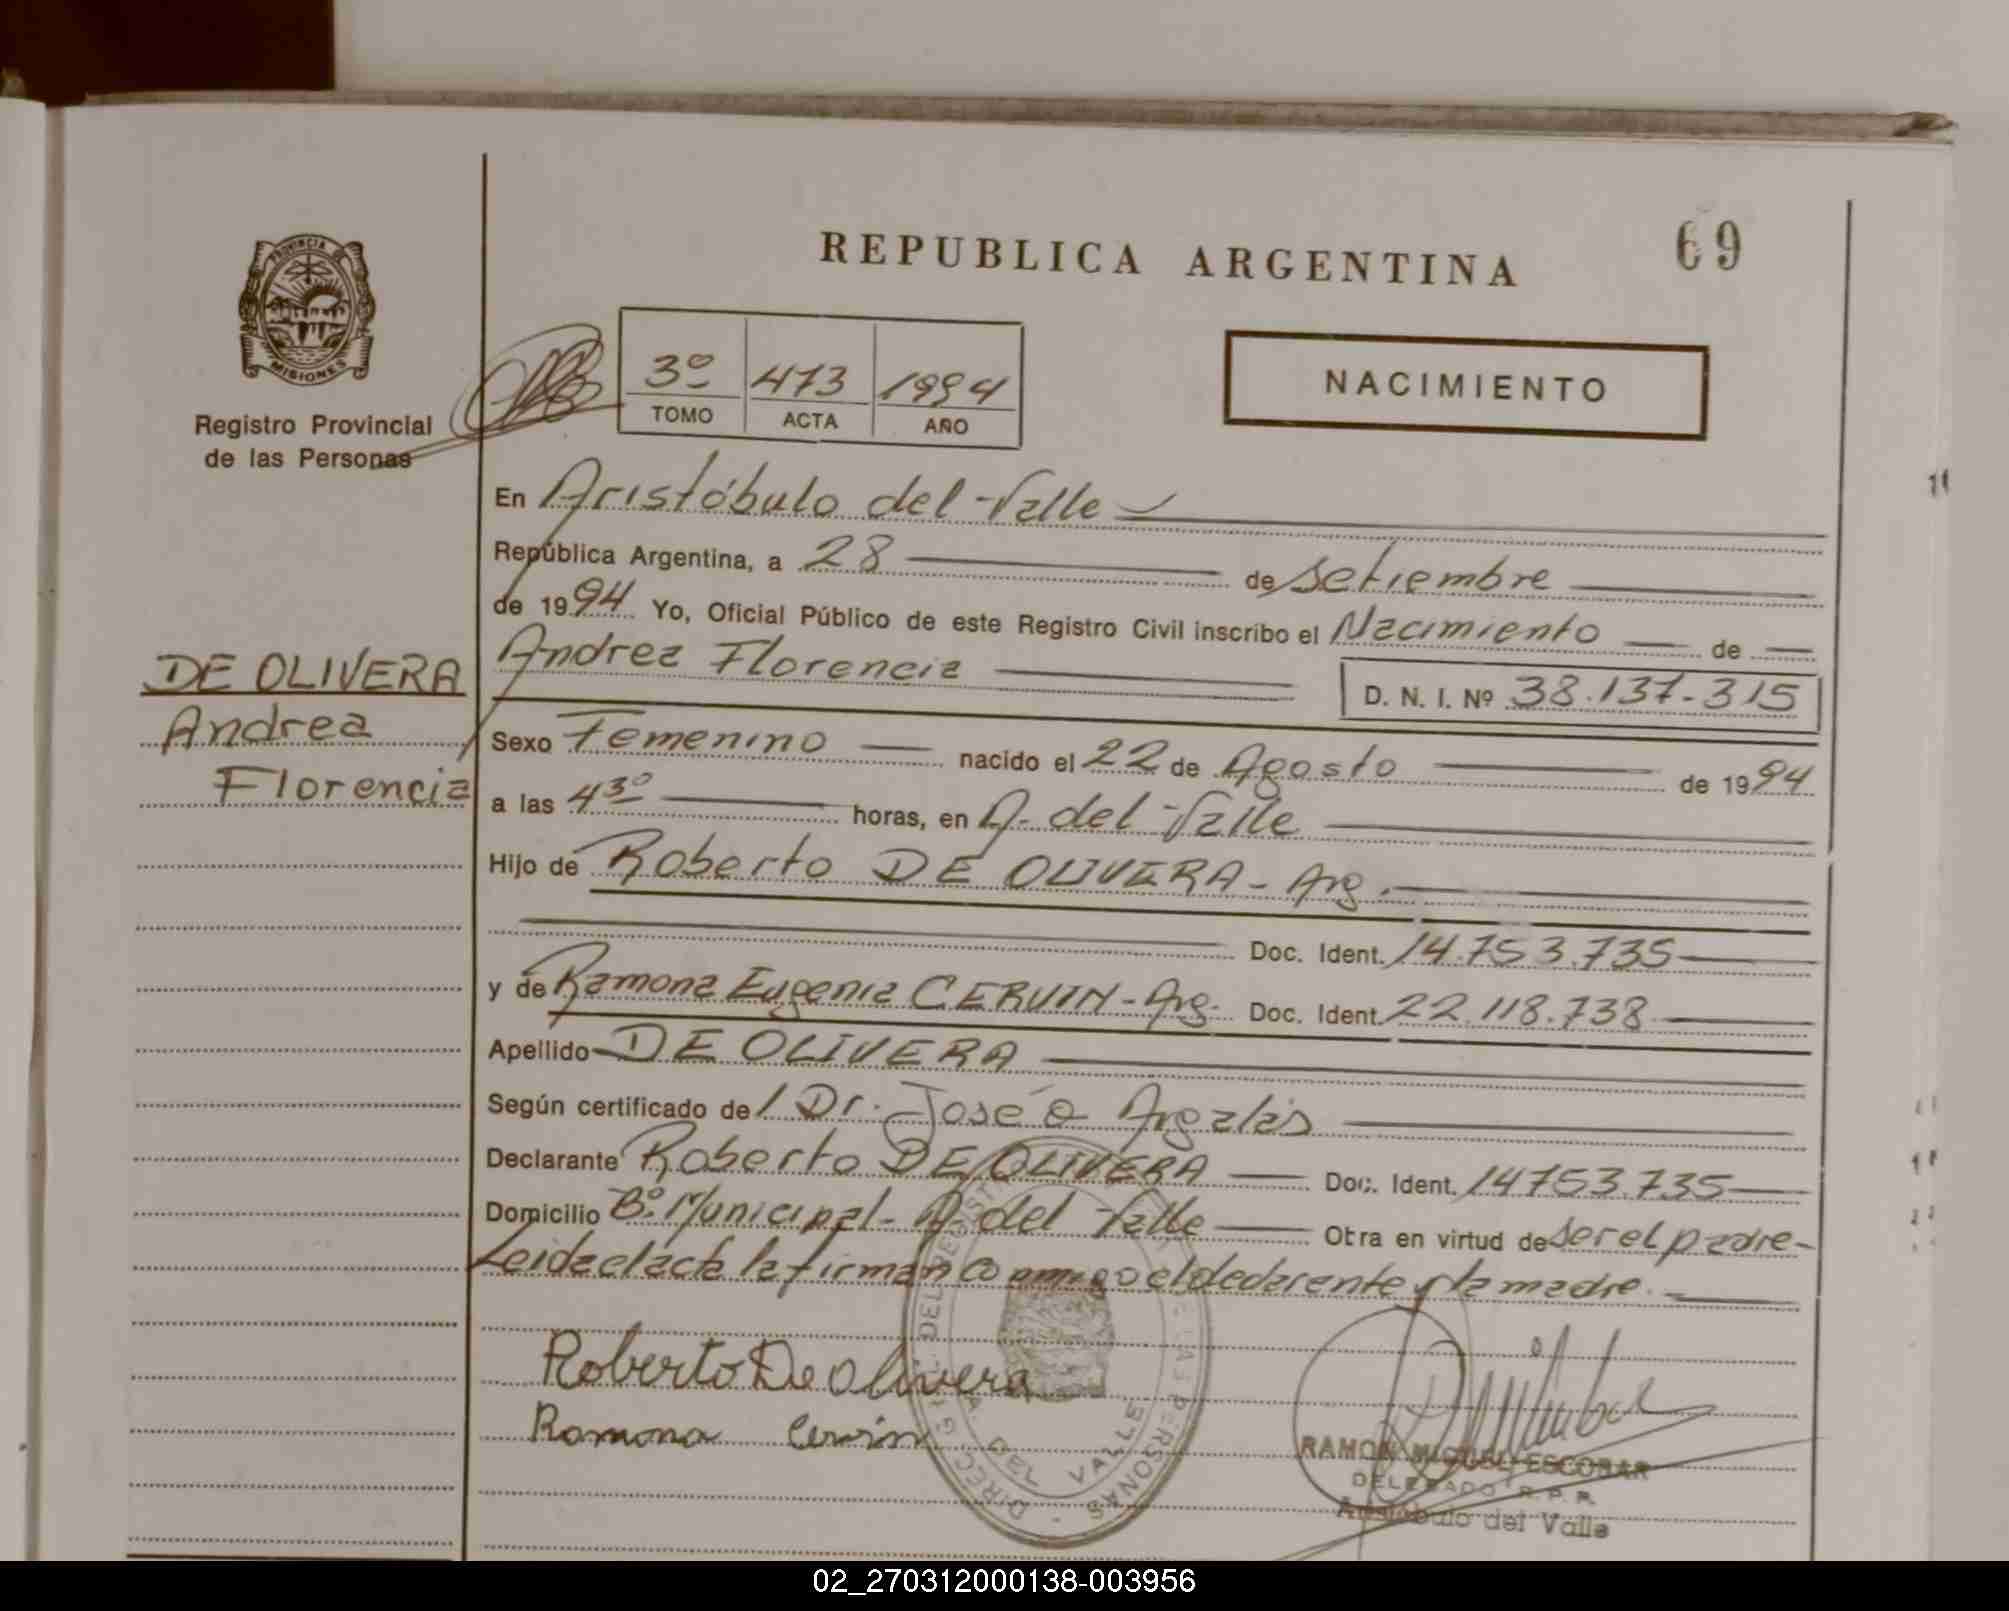 REPUBLICA ARGENTINA
69
PROVINCIA
MISIONES
Registro Provincial
de las Personas
3º 473 1994
TOMO ACTA AÑO
NACIMIENTO
En Aristóbulo del Valle
República Argentina, a 28 de Setiembre
de 1994 Yo, Oficial Público de este Registro Civil inscribo el Nacimiento de
Andrea Florencia
D. N. I. Nº 38.137.315
DE OLIVERA
Andrea
Florencia
Sexo Femenino nacido el 22 de Agosto de 1994
a las 4³⁰ horas, en A. del Valle
Hijo de Roberto DE OLIVERA - Arg.
Doc. Ident. 14.753.735
y de Ramona Eugenia CERVIN - Arg. Doc. Ident. 22.118.738
Apellido DE OLIVERA
Según certificado de / Dr. José O
Declarante Roberto DE OLIVERA Doc. Ident. 14753735
Domicilio Bº Municipal - A. del Valle Otra en virtud de ser el padre -
Leida el acta la firman conmigo el declarante y la madre.
Roberto De Olivera
Ramona Cervin
DIREC. GRAL. DEL REGISTRO DE LAS PERSONAS
A. DEL VALLE
RAMON MIGUEL ESCOBAR
DELEGADO R. P. P.
Aristóbulo del Valle
02_270312000138-003956